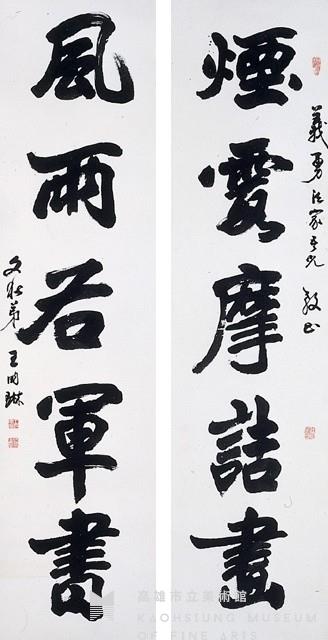 義勇法家吾兄 教正
煙霞摩詰畫
風雨右軍書
弟王
高雄市立美術館
KAOHSIUNG MUSEUM
OF FINE ARTS